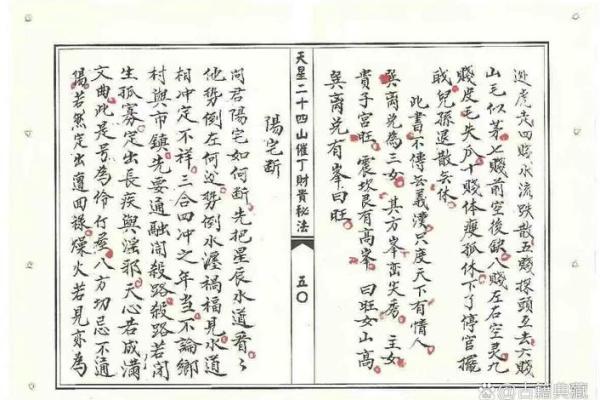 逊虎走四賤水流跌散五賤探頭並去六賤
山毛似茅七賤前空後缺八賤左右空灵九
賤皮毛失久十賤体瘦孤休下了停官擺
戟兒孫退散無休
此書不傳無義漢只度天下有情人
巽离兑為三女 其方峯巒失秀 主女
貴子宮旺 震坎艮有高峯 曰旺女山高
巽离兑有峯曰旺
天星二十四山催丁財貴秘法
五〇
陽宅断
问君陽宅如何断先把星辰水道看
他势倒左何边势倒水渥禍福見水道
相冲定不祥三合四冲之年当不論鄉
村與市鎮先要通融闭殺路殺路若闭
生孤寡定出長疾與淫邪天心若成满
文曲此是另為伶仃屋八方切忌不通
陽若然定出遭回禄燥火若見亦為
古籍典藏